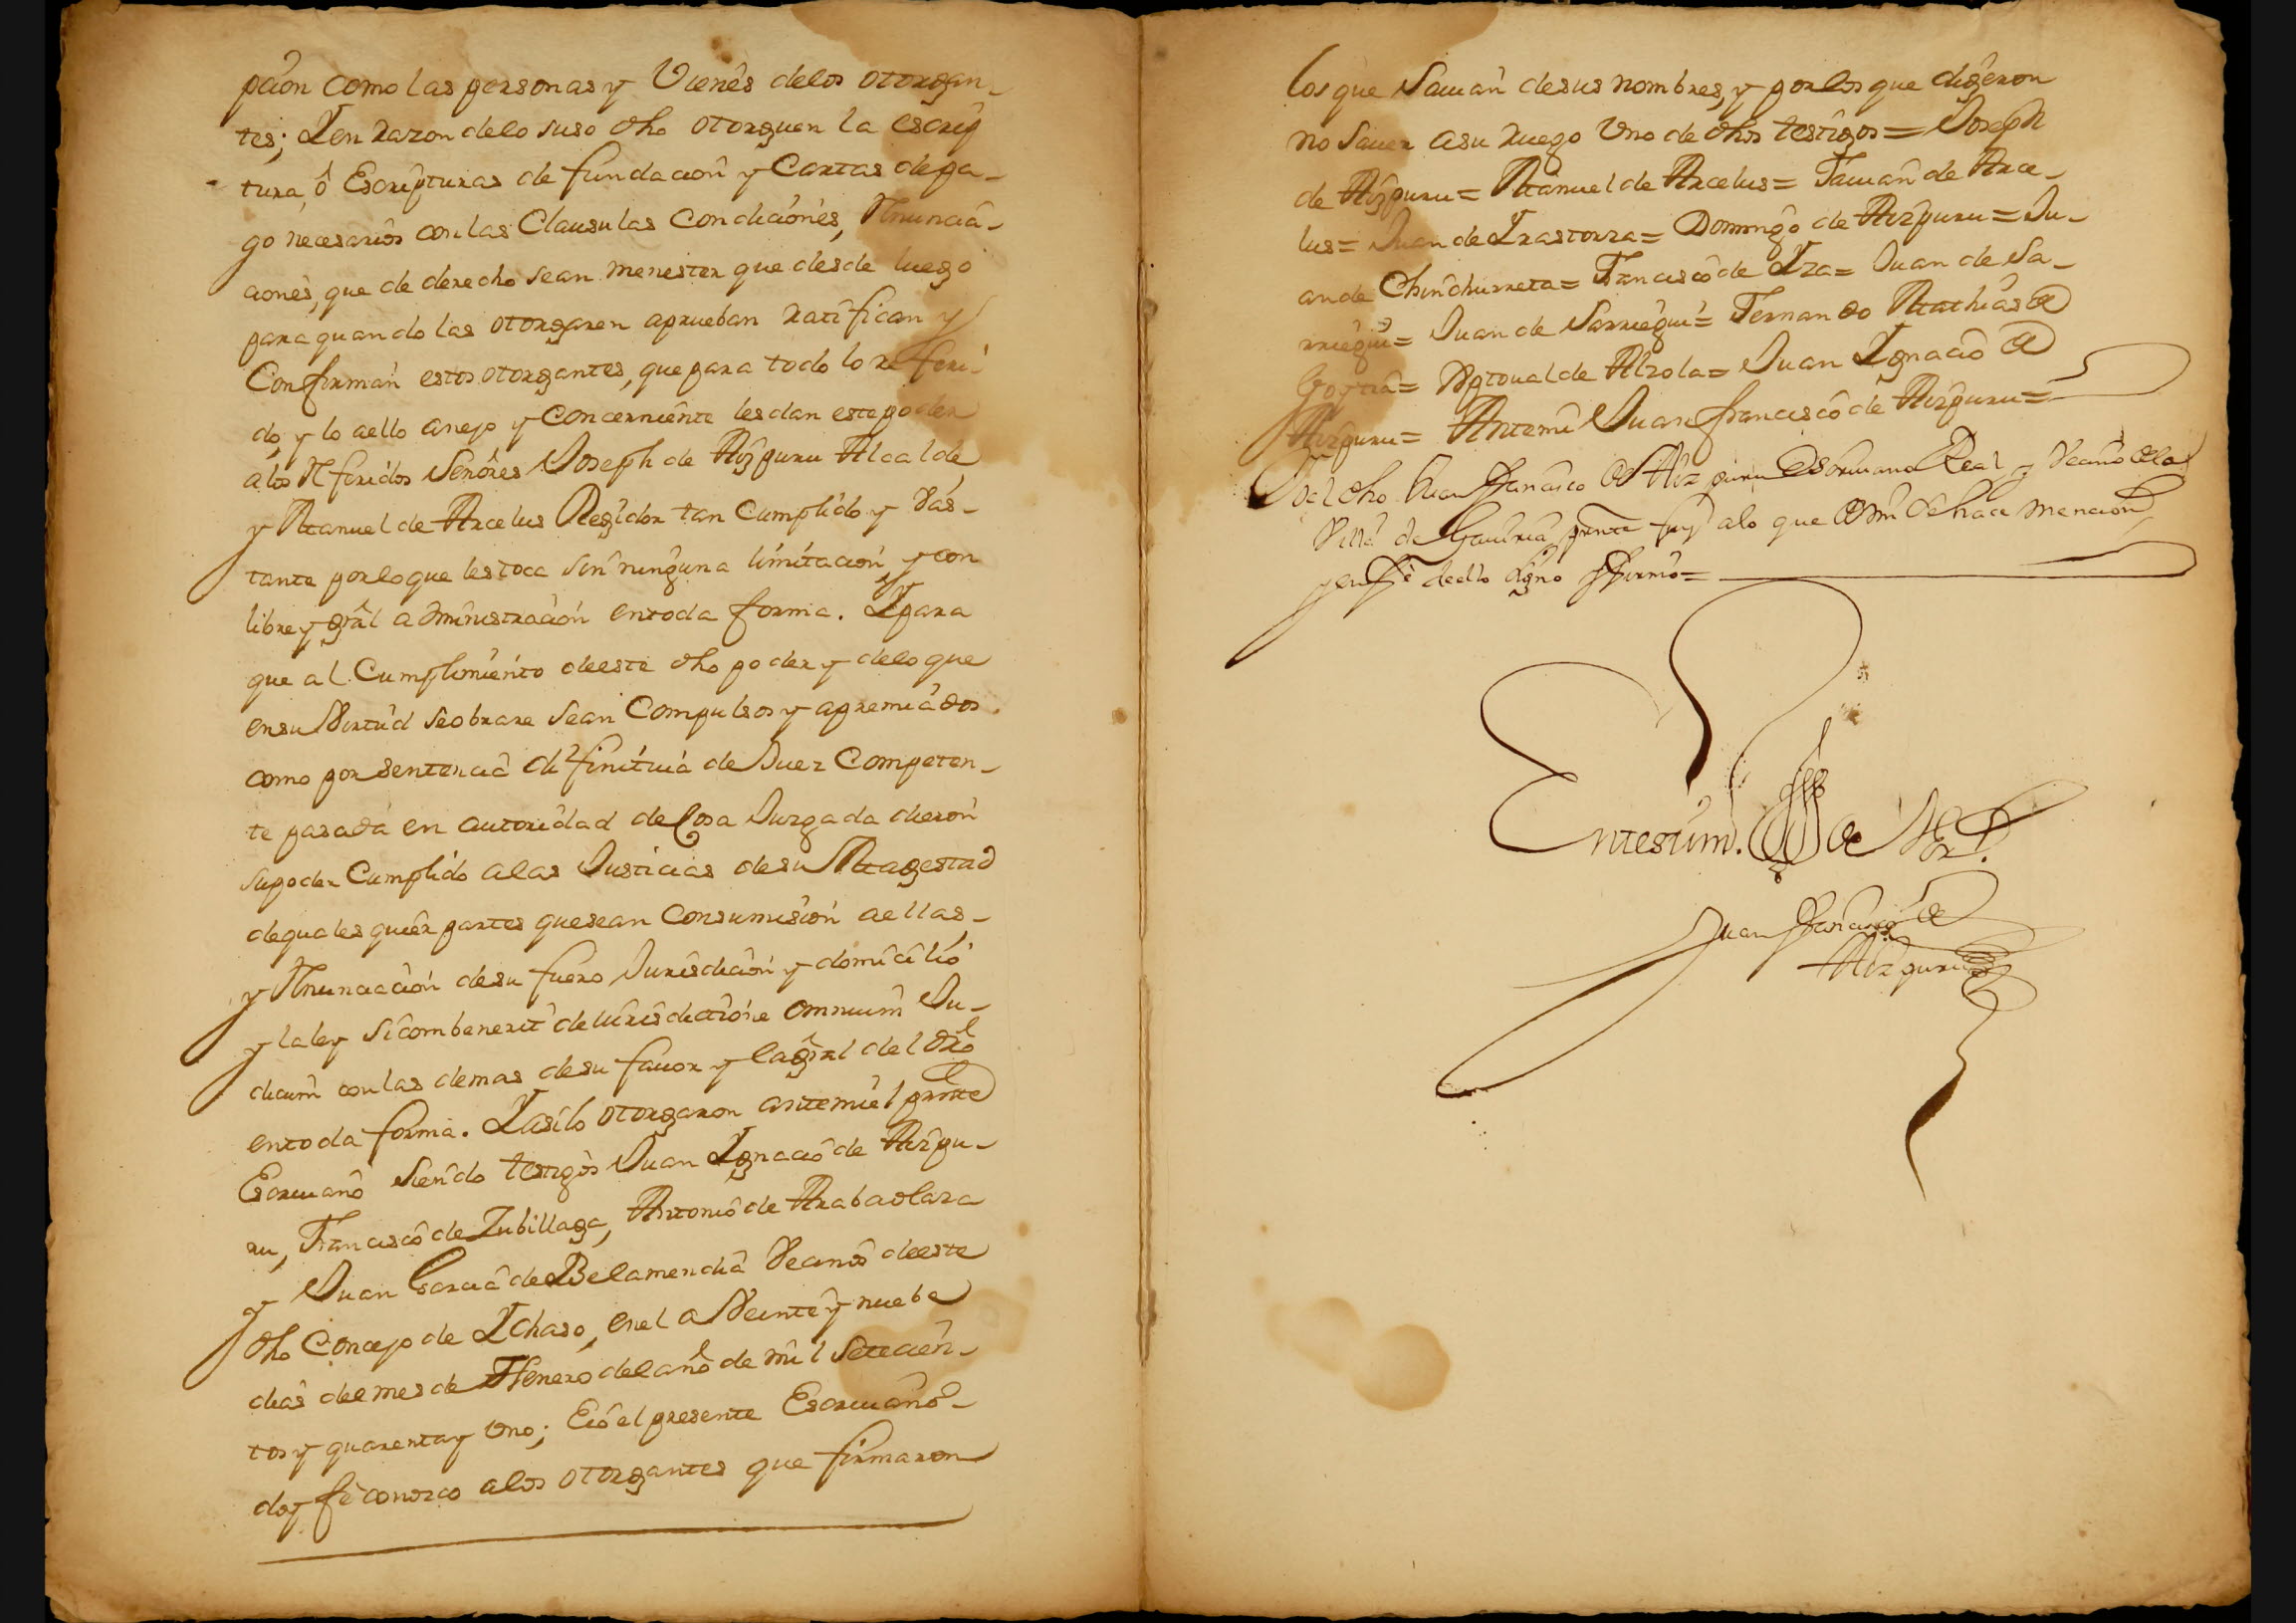 pcion como las personas y Vienes delos otorgan-
tes; Y en razon delo suso dho otorguen la escrip
tura, ô Escripturas de fundacion y Cartas de pa-
go necesarios con las Clausulas Condiciones, Rnuncia-
ciones, que de derecho sean menester que desde luego
para quando las otorgaren aprueban ratifican y
Confirman estos otorgantes, que para todo lo referi-
do, y lo aello anejo y Concerniente les dan este poder
alos Rferidos Señores Joseph de Aizpuru Alcalde
y Manuel de Arcelus Regidor tan Cumplido y Vas-
tante por lo que les toca sin ninguna limitacion y con
libre y gral administracion entoda forma. Y para
que al Cumplimiento deeste dho poder y delo que
en su Virtud se obrare sean Compulsos y apremiados
como por sentencia difinitiua de Juez Competen-
te pasada en autoridad de Cosa Juzgada dieron
su poder Cumplido alas Justicias de su Magestad
de quales quier partes que sean Consumision aellas,
y Rnunciacion de su fuero Jurisdicion y domicilio
y la ley si combenerit de iurisdictione omnium Ju-
dicum con las demas de su fauor y la gral del dro
en toda forma. Y asi lo otorgaron ante mi el prnte
Escriuano siendo testigos Juan Ygnacio de Aizpu-
ru, Francisco de Zubillaga, Antonio de Arabaolaza
y Juan Garcia de Belamendia Vecinos deeste
dho Concejo de Ychaso, en el a Veinte y nuebe
dias del mes de Henero del año de mil setecien-
tos y quarenta y Uno; E io el presente Escriuano
doy fe conozco alos otorgantes que firmaron
los que sauian de sus nombres, y por los que dijeron
no sauer a su ruego Uno de dhos testigos = Joseph
de Aizpuru = Manuel de Arcelus = Damian de Arce-
lus = Juan de Yrastorza = Domingo de Aizpuru = Ju-
an de Chinchurreta = Francisco de Yza = Juan de Sa-
rriegui = Juan de Sarriegui = Fernando Mathias de
Goytia = Xptoual de Alzola = Juan Ygnacio de
Aizpuru = Ante mi Juan francisco de Aizpuru =
Yo el dho Juan Francisco de Aizpuru Escriuano Real y Vecino de la
Villa de Gauiria presente fuy alo que de mi se hace mencion
y en fee de ello signo y firmo =
En testim.o de Ver.d
Juan Francisco de
Aizpuru